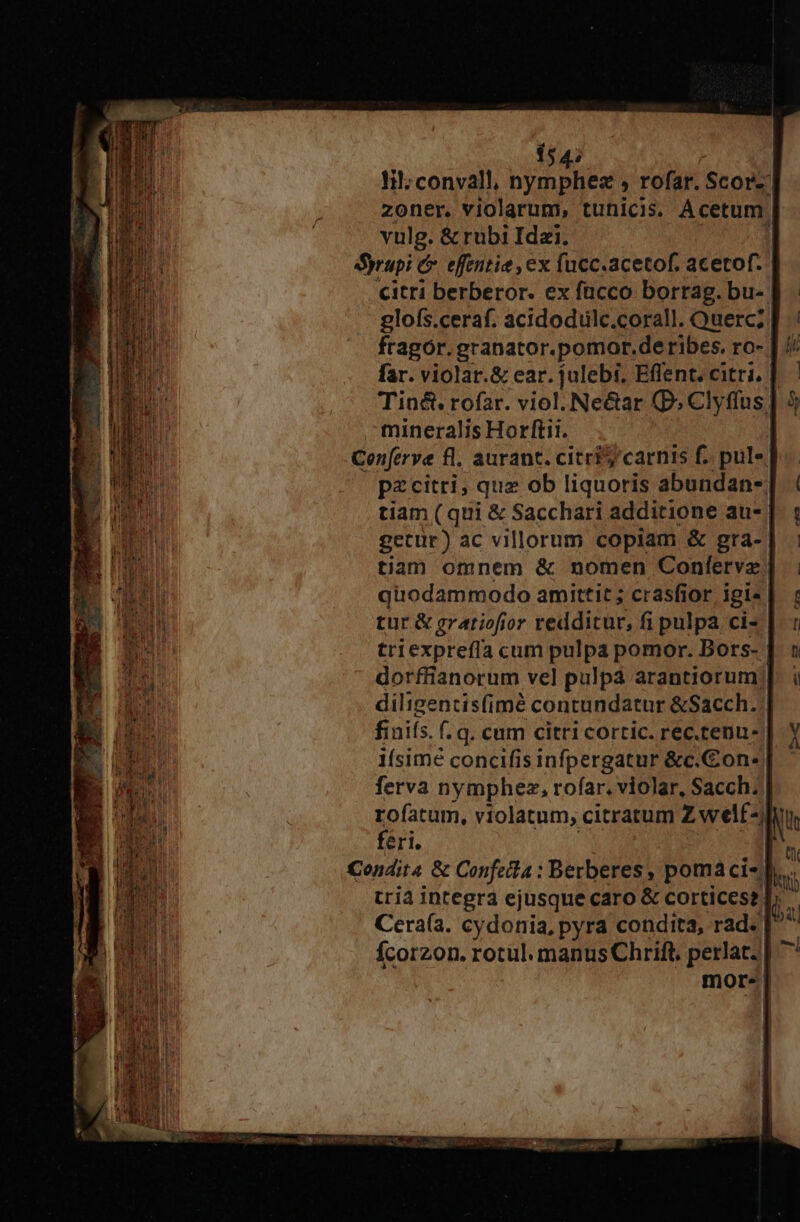 154
lil. convall, nympheæ, rosar. Scor-
zoner. violarum, tunicis. Acetum
vulg. & rubi Idæi.
Syrupi & essentiæ, ex succ. acetos. acetos.
citri berberor. ex succo borrag. bu-
gloss. ceras. acidodulc. corall. Querc;
fragor. granator. pomor. de ribes. ro-
sar. violar. & ear. julebi. Essent. citri.
Tinct. rosar. viol. Nectar Clyssus
mineralis Horstii.
Conserve fl. aurant. citri, carnis s. pul-
pæ citri, quæ ob liquoris abundan-
tiam (qui & Sacchari additione au-
getur) ac villorum copiam & gra-
tiam omnem & nomen Conservæ
quodammodo amittit; crassior igi-
tur & gratiosior redditur, si pulpa ci-
tri expressa cum pulpa pomor. Bors-
dorffianorum vel pulpà arantiorum
diligentissimè contundatur & Sacch.
finiss. s. q. cum citri cortic. rec. tenu-
issimè concisis inspergatur &c. Con-
serva nympheæ, rosar. violar, Sacch.
rosatum, violatum, citratum Zwelf-
feri.
Condita & Confecta: Berberes, poma ci-
tria integra ejusque caro & cortices:
Cerasa. cydonia, pyra condita, rad.
scorzon. rotul. manus Christ. perlat.
mor-